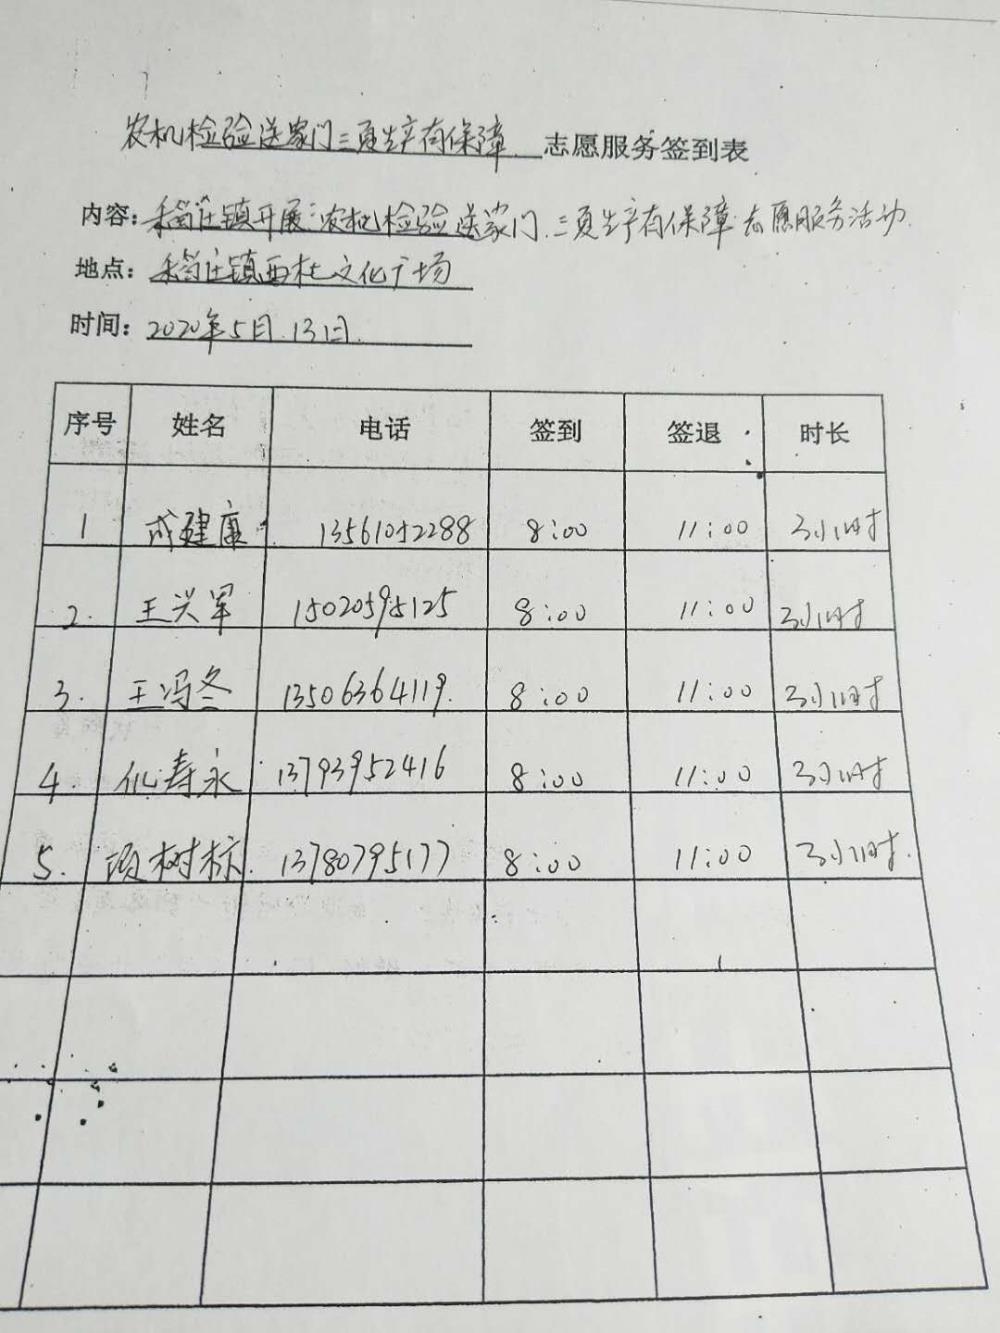 农机检验送家门三夏生产有保障 志愿服务签到表
内容：稻庄镇开展“农机检验送家门、三夏生产有保障”志愿服务活动
地点：稻庄镇西杜文化广场
时间：2020年5月13日
序号 姓名 电话 签到 签退 时长
1 成建康 13561052288 8:00 11:00 3小时
2. 王兴军 15020595125 8:00 11:00 3小时
3. 王冯冬 13506364119. 8:00 11:00 3小时
4. 寿永 13793952416 8:00 11:00 3小时
5. 树标 13780795177 8:00 11:00 3小时.